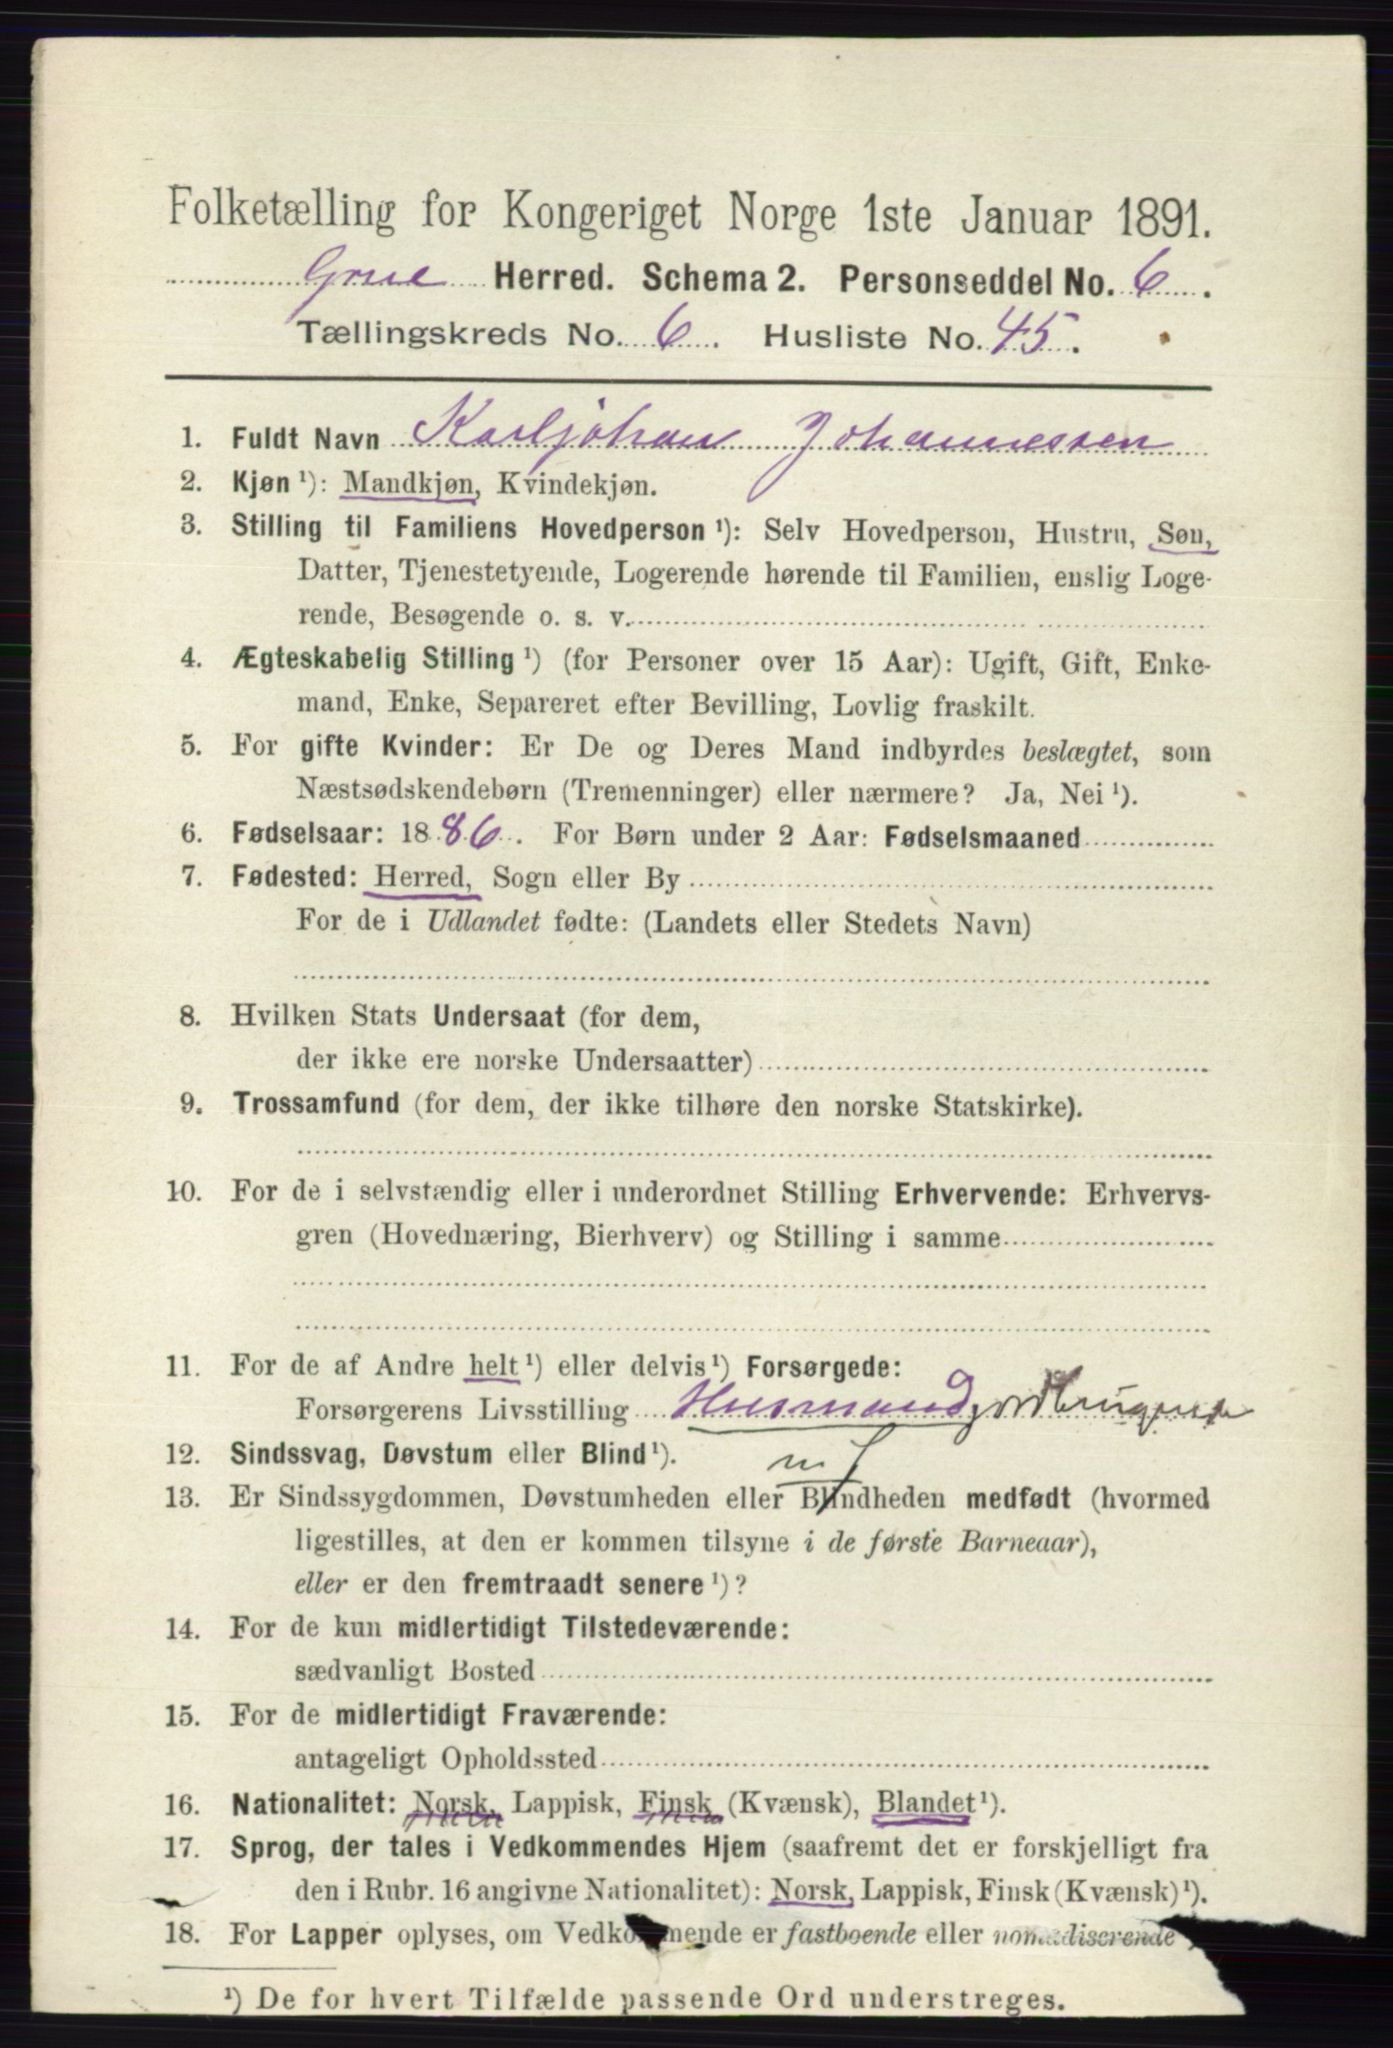 Folketælling for Kongeriget Norge 1ste Januar 1891.
Grue Herred. Schema 2. Personseddel No. 6.
Tællingskreds No. 6. Husliste No. 45.
1. Fuldt Navn Karljohan Johannessen
2. Kjøn ¹): Mandkjøn, Kvindekjøn.
3. Stilling til Familiens Hovedperson ¹): Selv Hovedperson, Hustru, Søn,
Datter, Tjenestetyende, Logerende hørende til Familien, enslig Loge-
rende, Besøgende o. s. v.
4. Ægteskabelig Stilling ¹) (for Personer over 15 Aar): Ugift, Gift, Enke-
mand, Enke, Separeret efter Bevilling, Lovlig fraskilt.
5. For gifte Kvinder: Er De og Deres Mand indbyrdes beslægtet, som
Næstsødskendebørn (Tremenninger) eller nærmere? Ja, Nei ¹).
6. Fødselsaar: 1886. For Børn under 2 Aar: Fødselsmaaned
7. Fødested: Herred, Sogn eller By
For de i Udlandet fødte: (Landets eller Stedets Navn)
8. Hvilken Stats Undersaat (for dem,
der ikke ere norske Undersaatter)
9. Trossamfund (for dem, der ikke tilhøre den norske Statskirke).
10. For de i selvstændig eller i underordnet Stilling Erhvervende: Erhvervs-
gren (Hovednæring, Bierhverv) og Stilling i samme
11. For de af Andre helt ¹) eller delvis ¹) Forsørgede:
Forsørgerens Livsstilling Husmand jordbrugende
m J
12. Sindssvag, Døvstum eller Blind ¹).
13. Er Sindssygdommen, Døvstumheden eller Blindheden medfødt (hvormed
ligestilles, at den er kommen tilsyne i de første Barneaar),
eller er den fremtraadt senere ¹)?
14. For de kun midlertidigt Tilstedeværende:
sædvanligt Bosted
15. For de midlertidigt Fraværende:
antageligt Opholdssted
16. Nationalitet: Norsk, Lappisk, Finsk (Kvænsk), Blandet ¹).
17. Sprog, der tales i Vedkommendes Hjem (saafremt det er forskjelligt fra
den i Rubr. 16 angivne Nationalitet): Norsk, Lappisk, Finsk (Kvænsk) ¹).
18. For Lapper oplyses, om Vedkommende er fastboende eller nomadiserende
¹) De for hvert Tilfælde passende Ord understreges.